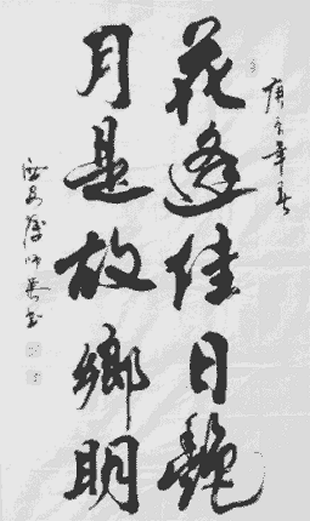 庚年春
花逢佳日艷
月是故鄉明
西安